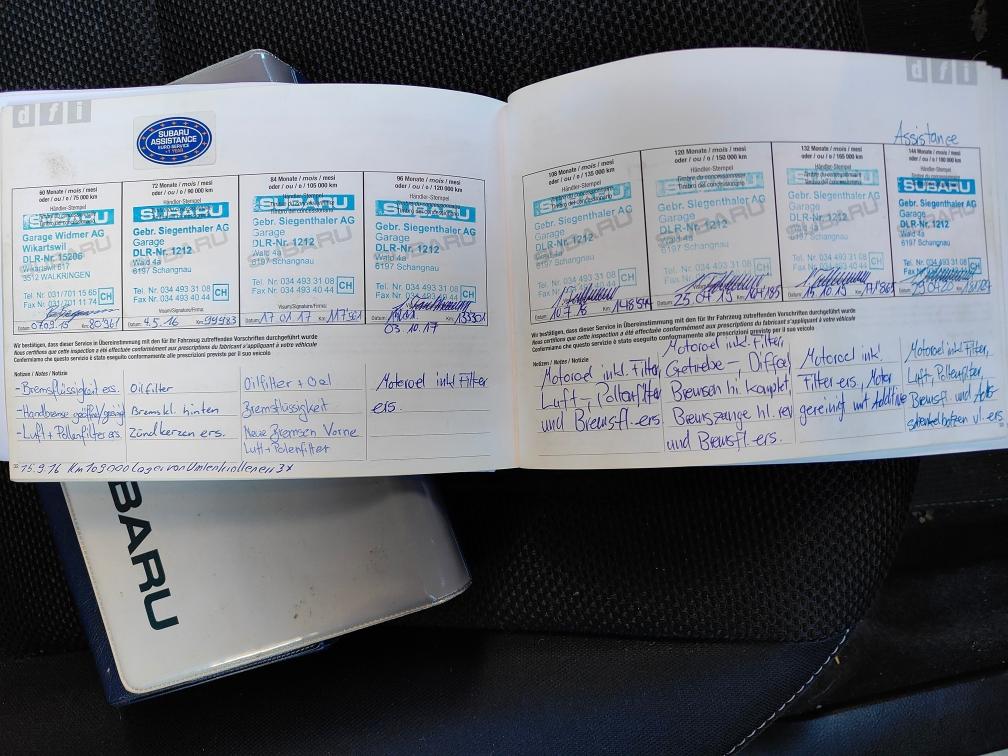 dfi
SUBARU
ASSISTANCE
EURO SERVICE
+1 YEAR
60 Monate / mois / mesi
oder / ou / o / 75 000 km
Händler-Stempel
SUBARU
Garage Widmer AG
Wikartswil
DLR-Nr. 15206
Wikartswil 617
3512 WALKRINGEN
Tel. Nr. 031/701 15 65
Fax Nr. 031/701 11 74 CH
Datum 07.09.15 Km 80'961
72 Monate / mois / mesi
oder / ou / o / 90 000 km
Händler-Stempel
SUBARU
Gebr. Siegenthaler AG
Garage
DLR-Nr. 1212
Wald 4a
6197 Schangnau
Tel. Nr. 034 493 31 08
Fax Nr. 034 493 40 44 CH
Visum/Signature/Firma:
Datum 4.5.16 Km 99983
84 Monate / mois / mesi
oder / ou / o / 105 000 km
Händler-Stempel
Timbre du concessionnaire
Timbro del concessionario
SUBARU
Gebr. Siegenthaler AG
Garage
DLR-Nr. 1212
Wald 4a
6197 Schangnau
Tel. Nr. 034 493 31 08
Fax Nr. 034 493 40 44 CH
Visum/Signature/Firma:
Datum 17.01.17 Km
96 Monate / mois / mesi
oder / ou / o / 120 000 km
Händler-Stempel
Timbre du concessionnaire
Timbro del concessionario
SUBARU
Gebr. Siegenthaler AG
Garage
DLR-Nr. 1212
Wald 4a
6197 Schangnau
Tel. Nr. 034 493 31 08
Fax Nr. 034 493 40 44 CH
03.10.17
Wir bestätigen, dass dieser Service in Übereinstimmung mit den für Ihr Fahrzeug zutreffenden Vorschriften durchgeführt wurde
Nous certifions que cette inspection a été effectuée conformément aux prescriptions du fabricant s'appliquant à votre véhicule
Confermiamo che questo servizio è stato eseguito conformemente alle prescrizioni previste per il suo veicolo
Notizen / Notes / Notizie
-Bremsflüssigkeit ers.
-Handbremse
-Luft + Pollenfilter ers.
Oilfilter
Bremskl. hinten
Zündkerzen ers.
Oilfilter + Oel
Bremsflüssigkeit
Neue Bremsen Vorne
Luft + Polenfilter
Motoroel inkl Filter
ers.
15.9.16 Km 109000 Lager von Umlenkrolleners 3x
dfi
Assistance
108 Monate / mois / mesi
oder / ou / o / 135 000 km
Händler-Stempel
Timbre du concessionnaire
Timbro del concessionario
SUBARU
Gebr. Siegenthaler AG
Garage
DLR-Nr. 1212
Wald 4a
6197 Schangnau
Tel. Nr. 034 493 31 08
Fax Nr. 034 493 40 44 CH
Datum 10.7.18 Km
120 Monate / mois / mesi
oder / ou / o / 150 000 km
Händler-Stempel
Timbre du concessionnaire
Timbro del concessionario
SUBARU
Gebr. Siegenthaler AG
Garage
DLR-Nr. 1212
Wald 4a
6197 Schangnau
Tel. Nr. 034 493 31 08
Fax Nr. 034 493 40 44 CH
Datum 25.04.19 Km
132 Monate / mois / mesi
oder / ou / o / 165 000 km
Händler-Stempel
Timbre du concessionnaire
Timbro del concessionario
SUBARU
Gebr. Siegenthaler AG
Garage
DLR-Nr. 1212
Wald 4a
6197 Schangnau
Tel. Nr. 034 493 31 08
Fax Nr. 034 493 40 44 CH
Datum 15.10.19 Km
144 Monate / mois / mesi
oder / ou / o / 180 000 km
Händler-Stempel
SUBARU
Gebr. Siegenthaler AG
Garage
DLR-Nr. 1212
Wald 4a
6197 Schangnau
Tel. Nr. 034 493 31 08
Wir bestätigen, dass dieser Service in Übereinstimmung mit den für Ihr Fahrzeug zutreffenden Vorschriften durchgeführt wurde
Nous certifions que cette inspection a été effectuée conformément aux prescriptions du fabricant s'appliquant à votre véhicule
Confermiamo che questo servizio è stato eseguito conformemente alle prescrizioni previste per il suo veicolo
Notizen / Notes / Notizie
Motoroel inkl. Filter,
Luft-, Pollenfilter
und Bremsfl. ers
Motoroel inkl. Filter,
Getriebe-, Diffoel
Bremsen hi. komplet,
Bremszange hl. rev
und Bremsfl. ers.
Motoroel inkl.
Filter ers, Motor
gereinigt mit Additive
Motoroel inkl. Filter,
Luft-, Pollenfilter,
Bremsfl. und
vl. ers
SUBARU